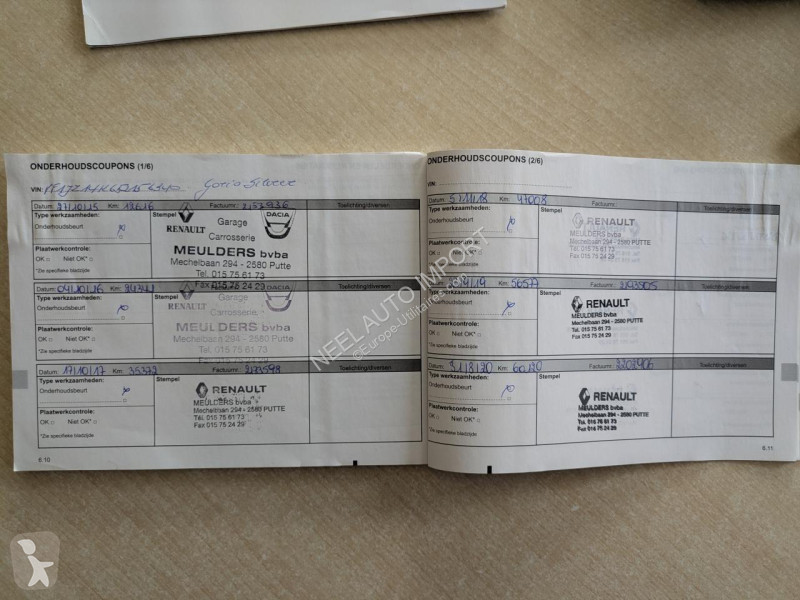 ONDERHOUDSCOUPONS (1/6)
VIN:
Datum: 27/10/15 Km: Factuurnr.: Toelichting/diversen
Type werkzaamheden: Stempel
Onderhoudsbeurt
Plaatwerkcontrole:
OK Niet OK*
*Zie specifieke bladzijde
RENAULT
Garage
Carrosserie
DACIA
MEULDERS bvba
Mechelbaan 294 - 2580 Putte
Tel. 015 75 61 73
Fax 015 75 24 29
Datum: 04/10/16 Km: Factuurnr.: Toelichting/diversen
Type werkzaamheden: Stempel
Onderhoudsbeurt
Plaatwerkcontrole:
OK Niet OK*
*Zie specifieke bladzijde
RENAULT
Garage
Carrosserie
MEULDERS bvba
Mechelbaan 294 - 2580 Putte
Tel. 015 75 61 73
Fax 015 75 24 29
Datum: 17/10/17 Km: 35372 Factuurnr.: 2173598 Toelichting/diversen
Type werkzaamheden: Stempel
Onderhoudsbeurt
Plaatwerkcontrole:
OK Niet OK*
*Zie specifieke bladzijde
RENAULT
MEULDERS bvba
Mechelbaan 294 - 2580 PUTTE
Tel. 015 75 61 73
Fax 015 75 24 29
6.10
ONDERHOUDSCOUPONS (2/6)
VIN:
Datum: 5/11/18 Km: 47008 Factuurnr.: Toelichting/diversen
Type werkzaamheden: Stempel
Onderhoudsbeurt
Plaatwerkcontrole:
OK Niet OK*
*Zie specifieke bladzijde
RENAULT
MEULDERS bvba
Mechelbaan 294 - 2580 PUTTE
Tel. 015 75 61 73
Fax 015 75 24 29
Km: Factuurnr.: Toelichting/diversen
Type werkzaamheden: Stempel
Onderhoudsbeurt
Plaatwerkcontrole:
OK Niet OK*
*Zie specifieke bladzijde
RENAULT
MEULDERS bvba
Mechelbaan 294 - 2580 PUTTE
Tel. 015 75 61 73
Fax 015 75 24 29
Datum: Km: 60120 Factuurnr.: 2202906 Toelichting/diversen
Type werkzaamheden: Stempel
Onderhoudsbeurt
Plaatwerkcontrole:
OK Niet OK*
*Zie specifieke bladzijde
RENAULT
MEULDERS bvba
Mechelbaan 294 - 2580 PUTTE
Tel. 015 75 61 73
Fax 015 75 24 29
6.11
NEEL AUTO IMPORT